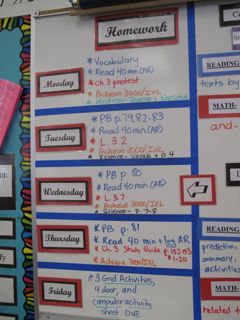 Homework
Monday
* Vocabulary
* Read 40 min (AR)
* Ch 3 pretest
* Achieve 3000/IXL
* Writing - Theme
Tuesday
* PB p.79, 82-83
* Read 40 min (AR)
* L. 3.2
* Achieve 3000/IXL
* Science - Vocab + p. 4
Wednesday
* PB p. 80
* Read 40 min (AR)
* L 3.7
* Achieve 3000/IXL
* Science - p. 7-8
Thursday
* PB p. 81
* Read 40 min + log AR
* Ch. 3 Study Guide p. 152-153
# 1-20
* Achieve 3000/IXL
Friday
* 3 Grid Activities,
4 door, and
computer activity
sheet DUE
READING
texts by
MATH-
and-
READING
prediction,
summary,
activities
MATH-
related t